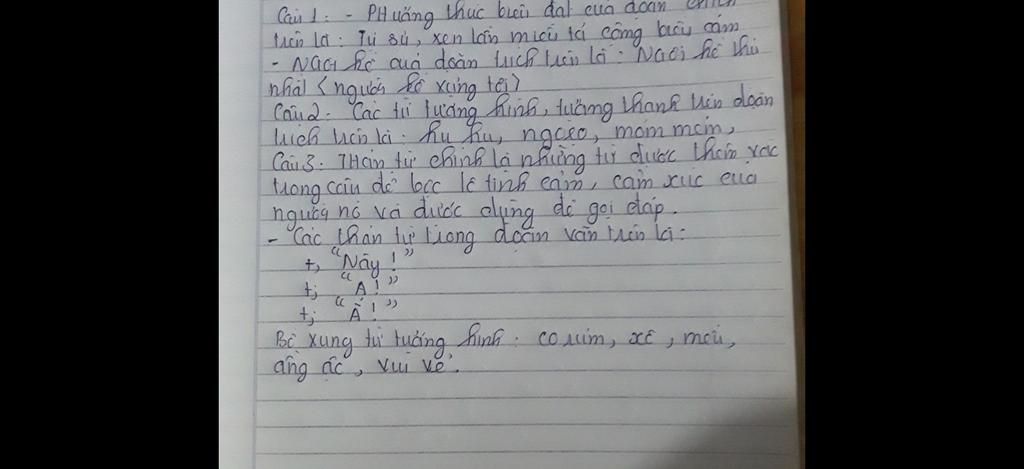 Câu 1: - PHương thức biểu đạt của đoạn trích
trên là: Tự sự, xen lẫn miêu tả cộng biểu cảm
- Ngôi kể của đoạn trích trên là: Ngôi kể thứ
nhất (người kể xưng tôi)
Câu 2: Các từ tượng hình, tượng thanh trên đoạn
trích trên là: hu hu, ngoẹo, móm mém,
Câu 3: THán từ chính là những từ được thêm vào
trong câu để bộc lộ tình cảm, cảm xúc của
người nó và được dụng để gọi đáp.
- Các thán từ trong đoạn văn trên là:
+, "Này!"
+, "A!"
+, "À!"
Bổ xung từ tượng hình: co rúm, xô, mếu,
ầng ậc, vui vẻ.